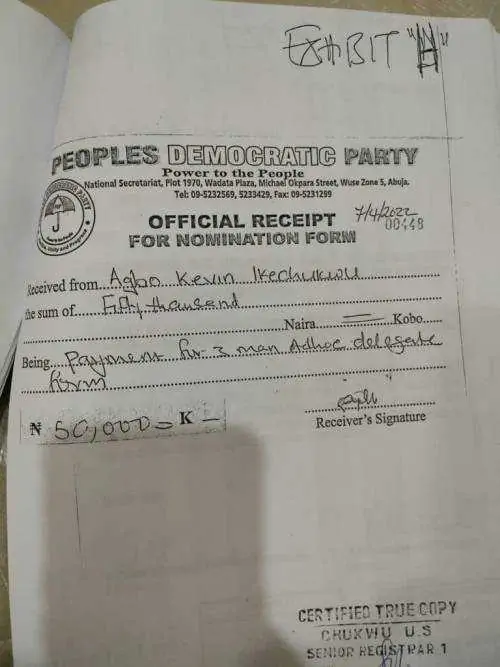 EXHIBIT "H"
PEOPLES DEMOCRATIC PARTY
Power to the People
National Secretariat, Plot 1970, Wadata Plaza, Michael Okpara Street, Wuse Zone 5, Abuja.
Tel: 09-5232569, 5233429, Fax: 09-5231299
OFFICIAL RECEIPT
FOR NOMINATION FORM
7/4/2022
00448
Received from Agbo Kevin Ikechukwu
the sum of Fifty thousand
Naira Kobo
Being Payment for 3 man Adhoc delegate
form
₦ 50,000= K –
Receiver's Signature
CERTIFIED TRUE COPY
CHUKWU U.S
SENIOR REGISTRAR 1